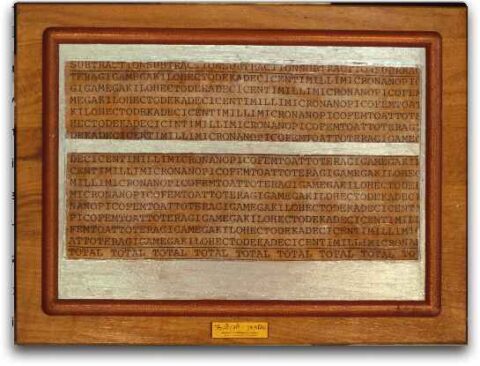 SUBTRACTIONSUBTRACTIONSUBTRACTIONSUBTRACTIONSUBTRA
TERAGIGAMEGAKILOHECTODEKADECICENTIMILLIMICRONANOPI
GIGAMEGAKILOHECTODEKADECICENTIMILLIMICRONANOPICOFE
MEGAKILOHECTODEKADECICENTIMILLIMICRONANOPICOFEMTOA
KILOHECTODEKADECICENTIMILLIMICRONANOPICOFEMTOATTOTE
HECTODEKADECICENTIMILLIMICRONANOPICOFEMTOATTOTERAGI
DEKADECICENTIMILLIMICRONANOPICOFEMTOATTOTERAGIGAME
DECICENTIMILLIMICRONANOPICOFEMTOATTOTERAGIGAMEGAKI
CENTIMILLIMICRONANOPICOFEMTOATTOTERAGIGAMEGAKILOHE
MILLIMICRONANOPICOFEMTOATTOTERAGIGAMEGAKILOHECTODE
MICRONANOPICOFEMTOATTOTERAGIGAMEGAKILOHECTODEKADEC
NANOPICOFEMTOATTOTERAGIGAMEGAKILOHECTODEKADECICENT
PICOFEMTOATTOTERAGIGAMEGAKILOHECTODEKADECICENTIMILL
FEMTOATTOTERAGIGAMEGAKILOHECTODEKADECICENTIMILLIMI
ATTOTERAGIGAMEGAKILOHECTODEKADECICENTIMILLIMICRONA
TOTAL TOTAL TOTAL TOTAL TOTAL TOTAL TOTAL TOTAL TO